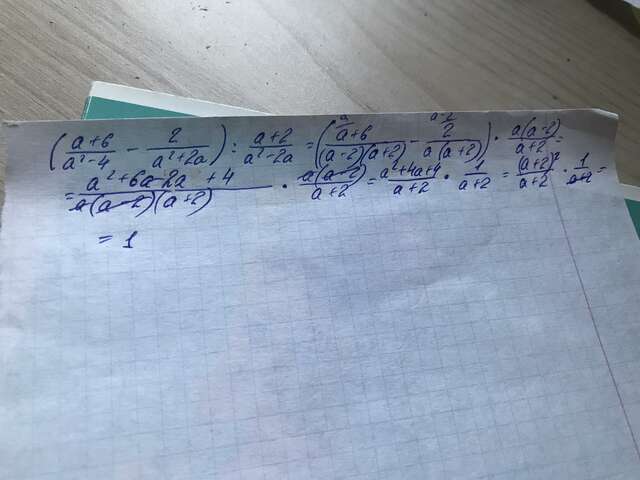 (a+6/a²-4 - 2/a²+2a) : a+2/a²-2a = (a a+6/(a-2)(a+2) - a-2 2/a(a+2)) · a(a-2)/a+2 =
= a²+6a-2a+4/a(a-2)(a+2) · a(a-2)/a+2 = a²+4a+4/a+2 · 1/a+2 = (a+2)²/a+2 · 1/a+2 =
= 1